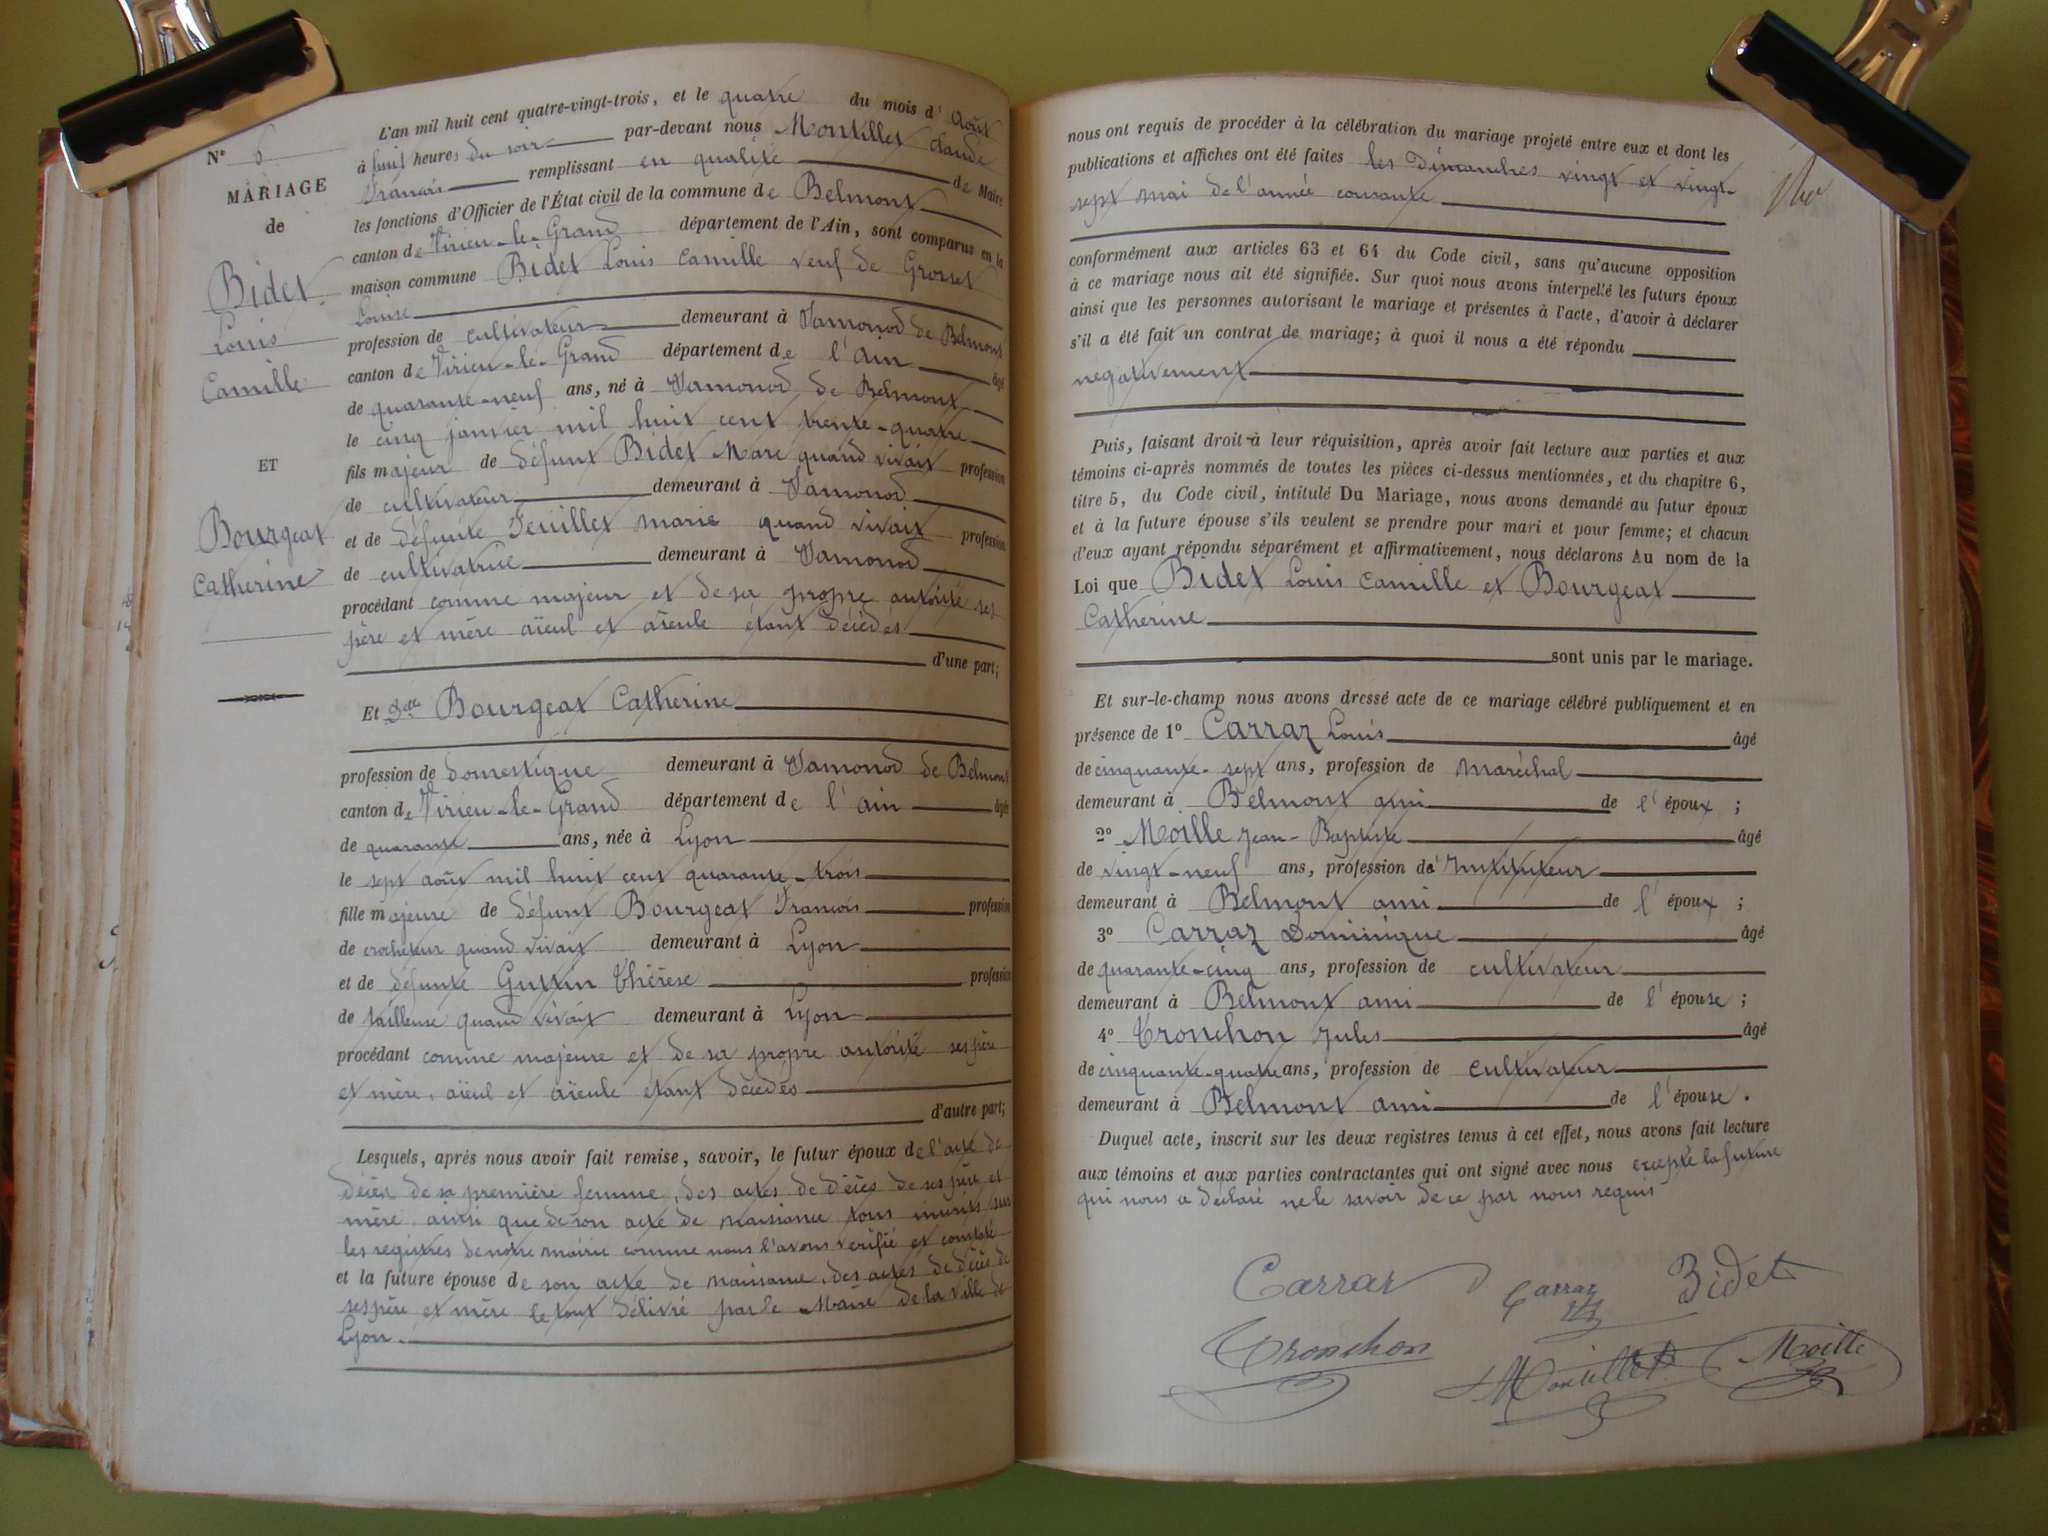 N° 6
MARIAGE
de
Bidet
Louis
Camille
ET
Bourgeat
Catherine
L'an mil huit cent quatre-vingt-trois, et le quatre du mois d'Août
à huit heures du soir par-devant nous Montillet Claude
François remplissant en qualité de Maire
les fonctions d'Officier de l'État civil de la commune de Belmont
canton de Virieu-le-Grand département de l'Ain, sont comparus en la
maison commune Bidet Louis Camille veuf de Grosset
Louise
profession de cultivateur demeurant à Vamonod de Belmont
canton de Virieu-le-Grand département de l'ain âgé
de quarante-neuf ans, né à Vamonod de Belmont
le cinq janvier mil huit cent trente-quatre
fils majeur de défunt Bidet Marc quand vivait profession
de cultivateur demeurant à Vamonod
et de défunte Feuillet marie quand vivait profession
de cultivatrice demeurant à Vamonod
procédant comme majeur et de sa propre autorité ses
père et mère aïeul et aïeule étant décédés
d'une part;
Et Dlle Bourgeat Catherine
profession de domestique demeurant à Vamonod de Belmont
canton de Virieu-le-Grand département de l'ain âgée
de quarante ans, née à Lyon
le sept août mil huit cent quarante-trois
fille majeure de défunt Bourgeat François profession
de crocheteur quand vivait demeurant à Lyon
et de défunte Guttin Thérèse profession
de tailleuse quand vivait demeurant à Lyon
procédant comme majeure et de sa propre autorité ses père
et mère, aïeul et aïeule étant décédés
d'autre part;
Lesquels, après nous avoir fait remise, savoir, le futur époux de l'acte de
décès de sa première femme, des actes de décès de ses père et
mère ainsi que de son acte de naissance tous inscrits sur
les registres de notre mairie comme nous l'avons vérifié et constaté
et la future épouse de son acte de naissance, des actes de décès de
ses père et mère le tout délivré par le Maire de la ville de
Lyon.
nous ont requis de procéder à la célébration du mariage projeté entre eux et dont les
publications et affiches ont été faites les Dimanches vingt et vingt-
sept mai de l'année courante
conformément aux articles 63 et 64 du Code civil, sans qu'aucune opposition
à ce mariage nous ait été signifiée. Sur quoi nous avons interpellé les futurs époux
ainsi que les personnes autorisant le mariage et présentes à l'acte, d'avoir à déclarer
s'il a été fait un contrat de mariage; à quoi il nous a été répondu
négativement
Puis, faisant droit à leur réquisition, après avoir fait lecture aux parties et aux
témoins ci-après nommés de toutes les pièces ci-dessus mentionnées, et du chapitre 6,
titre 5, du Code civil, intitulé Du Mariage, nous avons demandé au futur époux
et à la future épouse s'ils veulent se prendre pour mari et pour femme; et chacun
d'eux ayant répondu séparément et affirmativement, nous déclarons Au nom de la
Loi que Bidet Louis Camille et Bourgeat
Catherine
sont unis par le mariage.
Et sur-le-champ nous avons dressé acte de ce mariage célébré publiquement et en
présence de 1° Carraz Louis âgé
de cinquante-sept ans, profession de maréchal
demeurant à Belmont ami de l'époux ;
2° Moille Jean-Baptiste âgé
de vingt-neuf ans, profession d'Instituteur
demeurant à Belmont ami de l'époux ;
3° Carraz Dominique âgé
de quarante-cinq ans, profession de cultivateur
demeurant à Belmont ami de l'épouse ;
4° Tronchon Jules âgé
de cinquante-quatre ans, profession de cultivateur
demeurant à Belmont ami de l'épouse.
Duquel acte, inscrit sur les deux registres tenus à cet effet, nous avons fait lecture
aux témoins et aux parties contractantes qui ont signé avec nous excepté la future
qui nous a déclaré ne le savoir de ce par nous requis
Carraz Carraz Bidet
Tronchon Montillet Moille